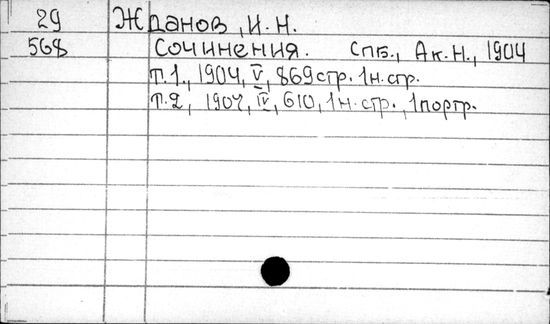 29 Жданов, И. Н.
568 Сочинения. Спб., Ак. Н., 1904
т. 1., 1904, V, 869 стр. 1 н. стр.
т. 2, 1907, IV, 610, 1 н. стр., 1 портр.